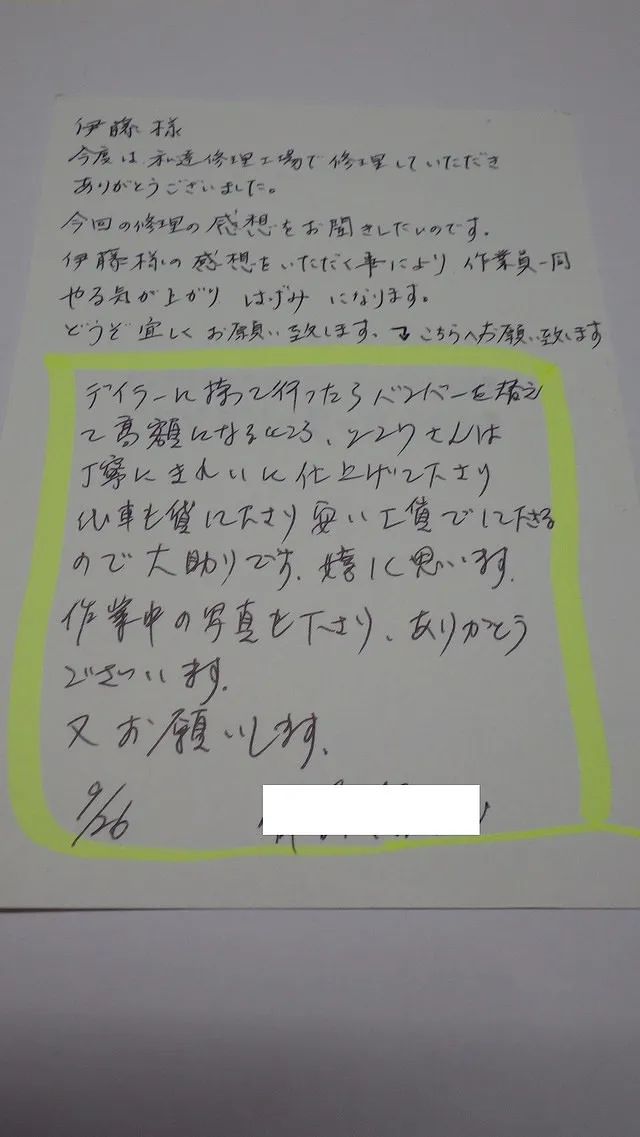 伊藤様
今度は私達修理工場で修理していただき
ありがとうございました。
今回の修理の感想をお聞きしたいのです。
伊藤様の感想をいただく事により作業員一同
やる気が上がり はげみ になります。
どうぞ宜しくお願い致します、↓こちらへお願い致します
デイラーに持って行ったらバンパーを替え
て高額になるところ、 さんは
丁寧にきれいに仕上げて下さり
代車も貸して下さり安い工賃でして下さる
ので大助りです。嬉しく思います。
作業中の写真も下さり、ありがとう
ございます。
又お願いします。
9/26